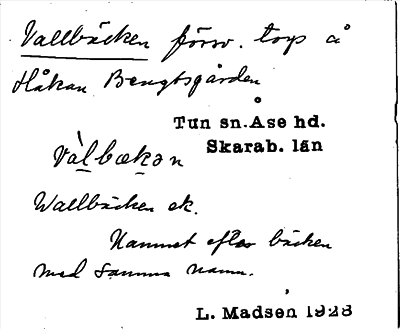 Vallbäcken försv. torp å
Håkan Bengtsgården
Tun sn. Åse hd.
Skarab. län
vàlbækən
Wallbäcken ek.
Namnet efter bäcken
med samma namn.
L. Madsen 1928